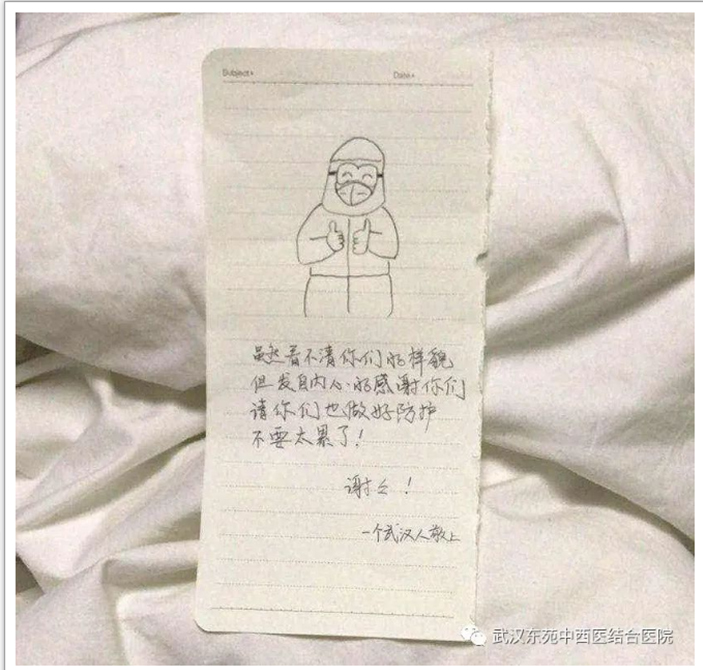 Subject•
Date•
虽然看不清你们的样貌
但发自内心的感谢你们
请你们也做好防护
不要太累了！
谢谢！
一个武汉人敬上
武汉东苑中西医结合医院